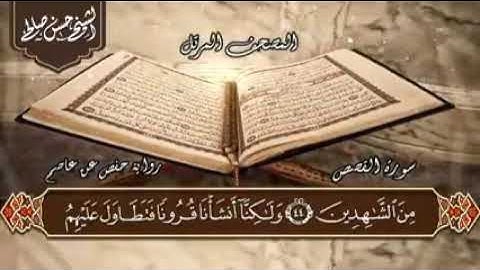 الشيخ حسن صالح
المصحف المرتل
سورة القصص
رواية حفص عن عاصم
مِنَ الشَّاهِدِينَ ﴿٤٤﴾ وَلَٰكِنَّا أَنشَأْنَا قُرُونًا فَتَطَاوَلَ عَلَيْهِمُ